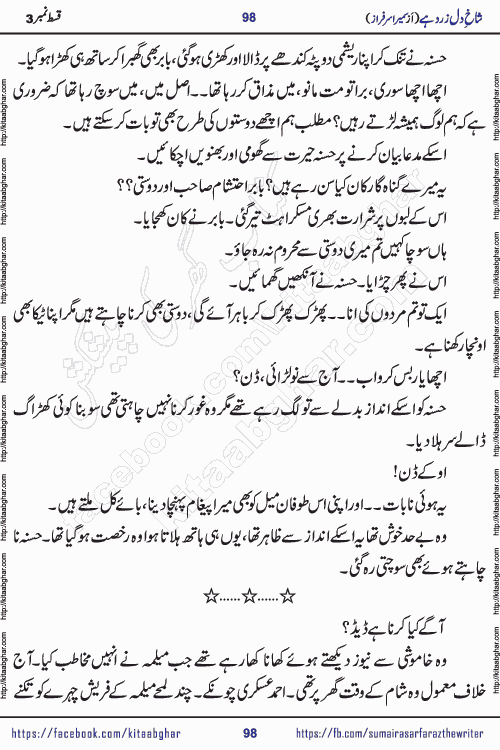 شاخِ دل زرد ہے (از سمیرا سرفراز) 98 قسط نمبر 3
حسنہ نے تنک کر اپنا ریشمی دوپٹہ کندھے پر ڈالا اور کھڑی ہو گئی، بابر بھی گھبرا کر ساتھ ہی کھڑا ہو گیا۔
اچھا اچھا سوری، برا تو مت مانو، میں مذاق کر رہا تھا۔۔اصل میں، میں سوچ رہا تھا کہ ضروری
ہے کہ ہم لوگ ہمیشہ لڑتے رہیں؟ مطلب ہم اچھے دوستوں کی طرح بھی تو بات کر سکتے ہیں۔
اسکے مدعا بیان کرنے پر حسنہ حیرت سے گھومی اور بھنویں اچکائیں۔
یہ میرے گناہ گار کان کیا سن رہے ہیں؟ بابر احتشام صاحب اور دوستی؟؟
اس کے لبوں پر شرارت بھری مسکراہٹ تیر گئی۔ بابر نے کان کھجایا۔
ہاں سوچا کہیں تم میری دوستی سے محروم نہ رہ جاؤ۔
اس نے پھر چڑایا۔ حسنہ نے آنکھیں گھمائیں۔
ایک تو تم مردوں کی انا۔۔ پھڑک پھڑک کر باہر آئے گی، دوستی بھی کرنا چاہتے ہیں مگر اپنا ٹیکا بھی
اونچا رکھنا ہے۔
اچھا یار بس کرو اب۔۔ آج سے نو لڑائی، ڈن؟
حسنہ کو اسکے انداز بدلے سے تو لگ رہے تھے مگر وہ غور کرنا نہیں چاہتی تھی سو بنا کوئی کھڑاگ
ڈالے سر ہلا دیا۔
او کے ڈن!
یہ ہوئی نا بات۔۔ اور اپنی اس طوفان میل کو بھی میرا پیغام پہنچا دینا، بائے کل ملتے ہیں۔
وہ بے حد خوش تھا یہ اسکے انداز سے ظاہر تھا، یوں ہی ہاتھ ہلاتا ہوا وہ رخصت ہو گیا تھا۔ حسنہ نا
چاہتے ہوئے بھی سوچتی رہ گئی۔
☆......☆......☆
آگے کیا کرنا ہے ڈیڈ؟
وہ خاموشی سے نیوز دیکھتے ہوئے کھانا کھا رہے تھے جب میلمہ نے انہیں مخاطب کیا۔ آج
خلاف معمول وہ شام کے وقت گھر پر تھی۔ احمد عسکری چونکے۔ چند لمحے میلمہ کے فریش چہرے کو تکنے
https://facebook.com/kitaabghar 98 https://fb.com/sumairasarfarazthewriter
http://kitaabghar.com
کتاب گھر کی پیشکش
kitaabghar.com
facebook.com/kitaabghar